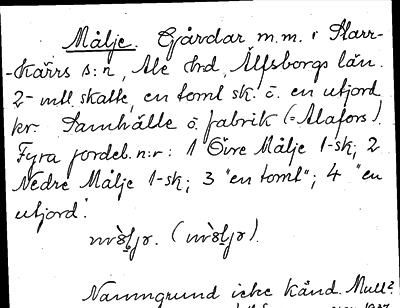 Målje. Gårdar m.m. i Starr-
-kärrs s:n, Ale hd, Älfsborgs län.
2 - mtl skatte, en tomt sk. o. en utjord
kr. Samhälle o. fabrik (= Alafors).
Fyra jordeb.n:r: 1 Övre Målje 1-sk; 2
Nedre Målje 1-sk; 3 "en tomt"; 4 "en
utjord".
Namngrund icke känd. Mull?